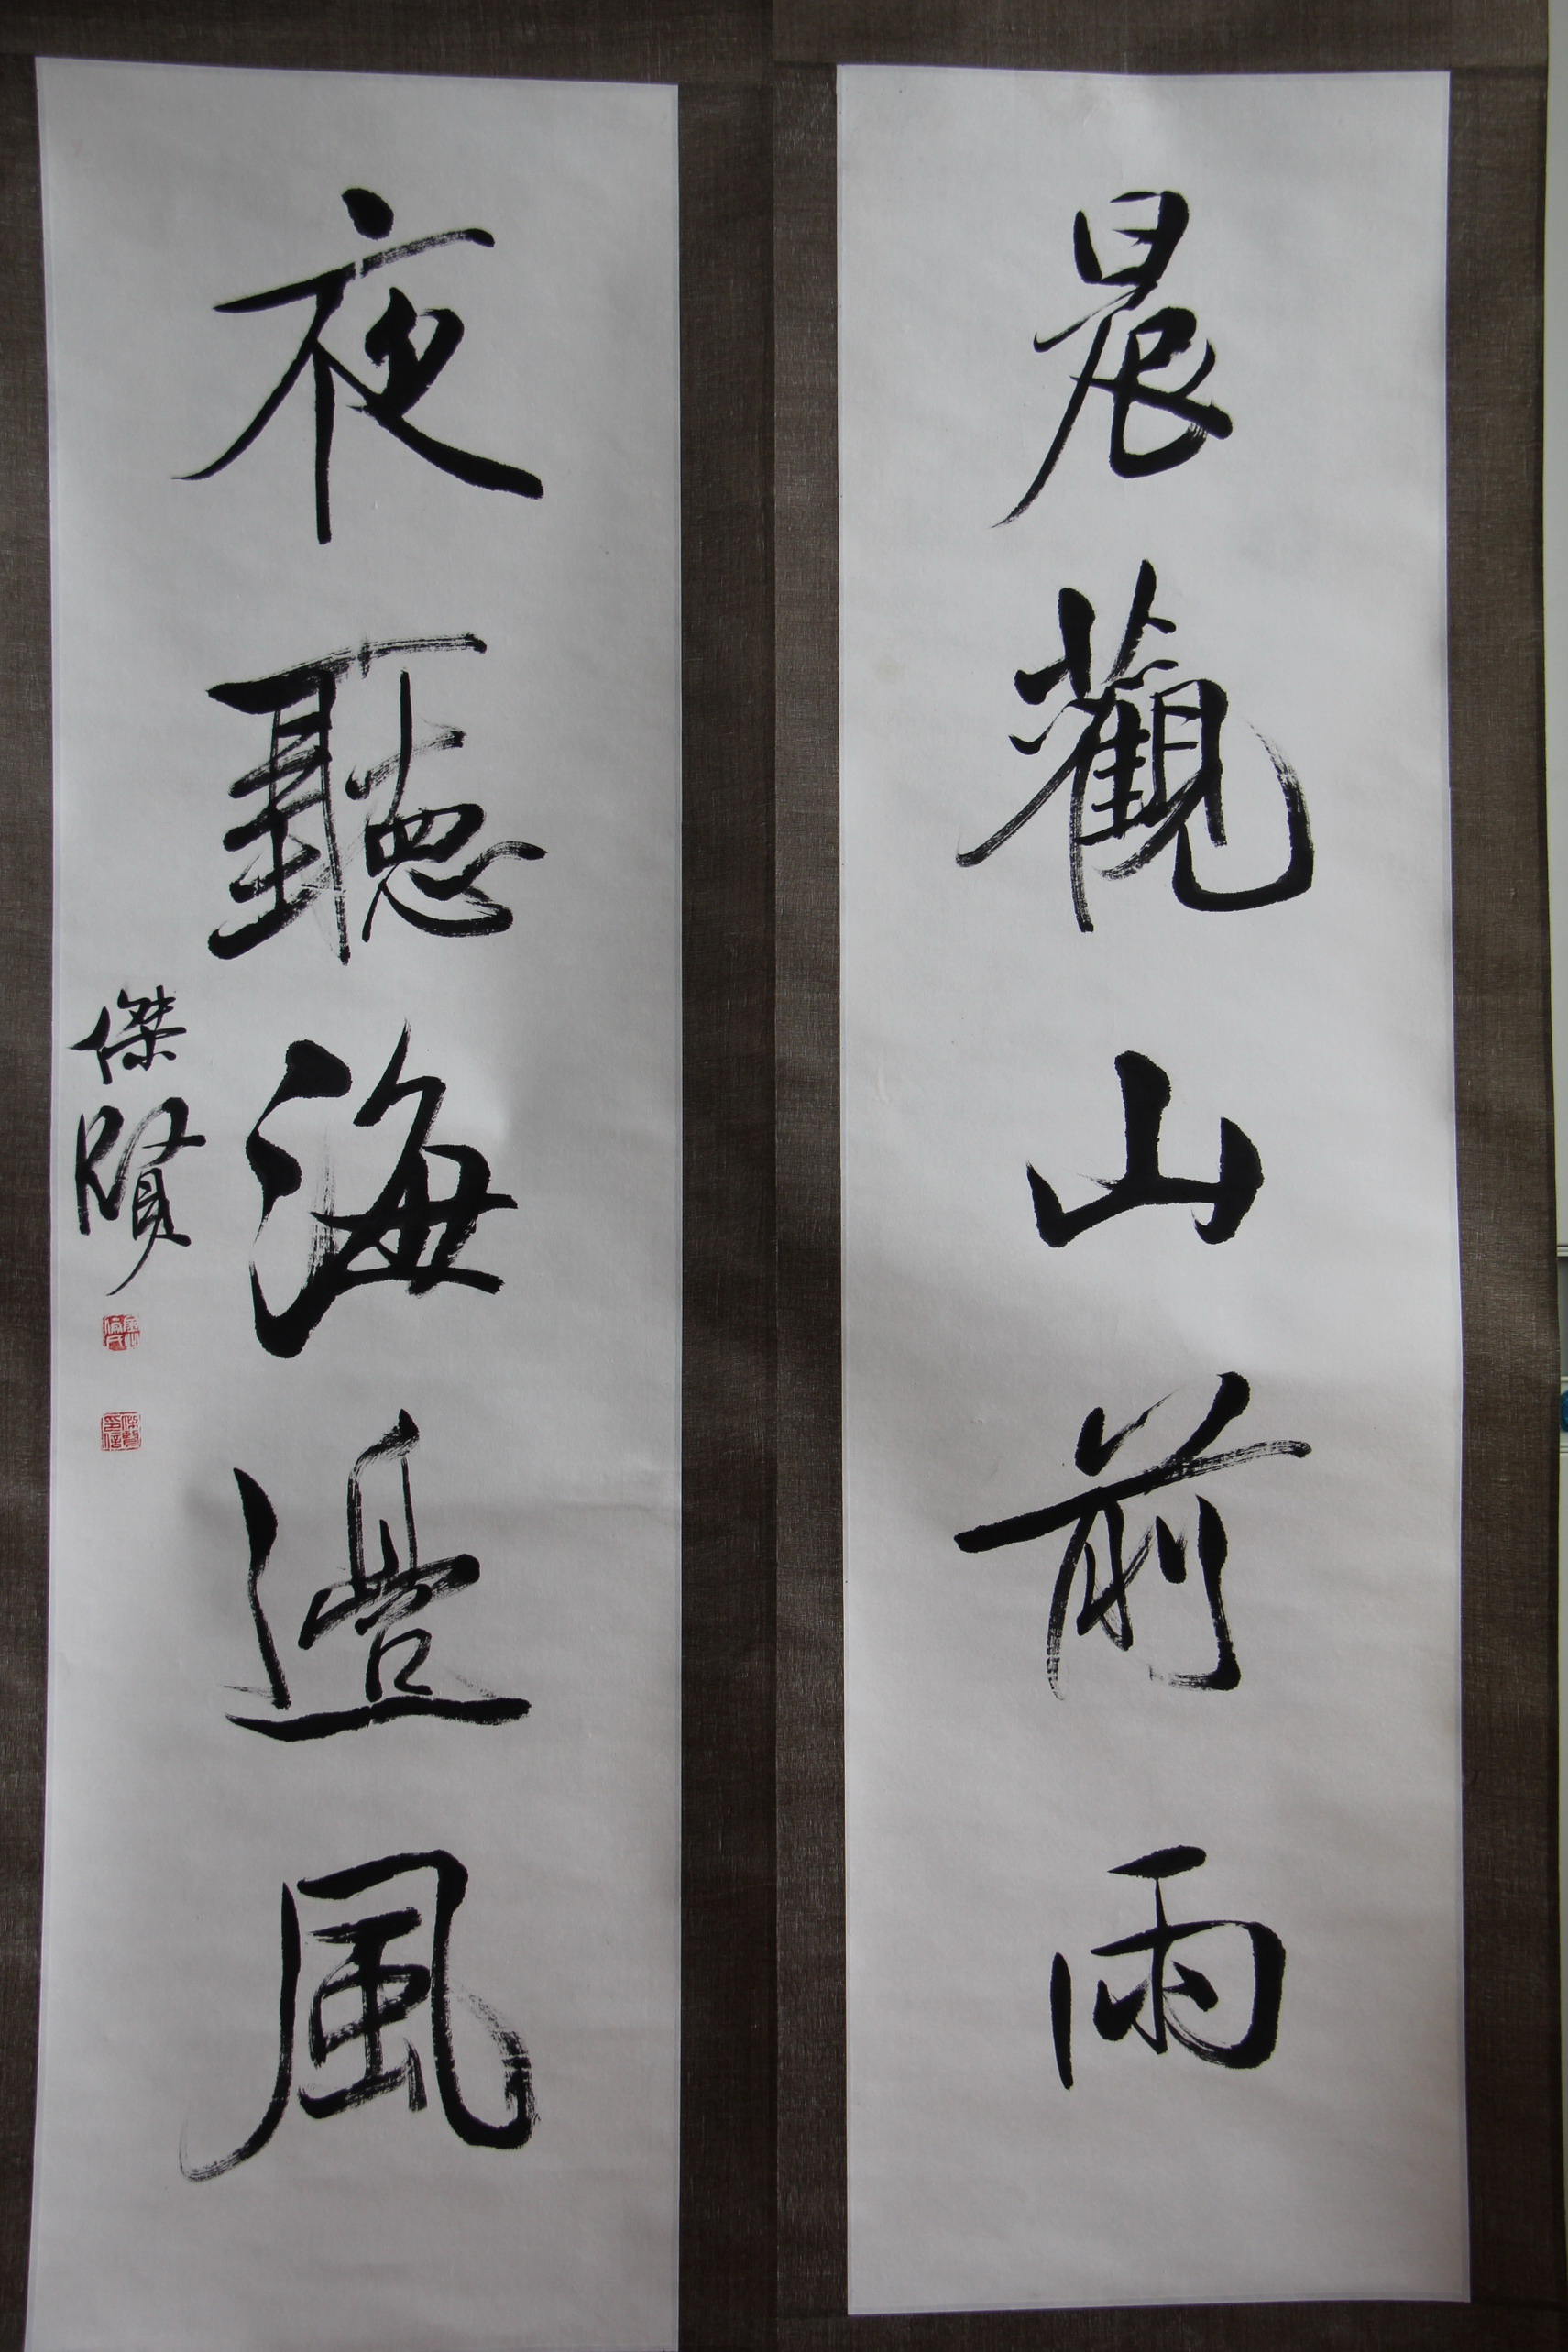 晨觀山前雨
夜聽海邊風
傑賢